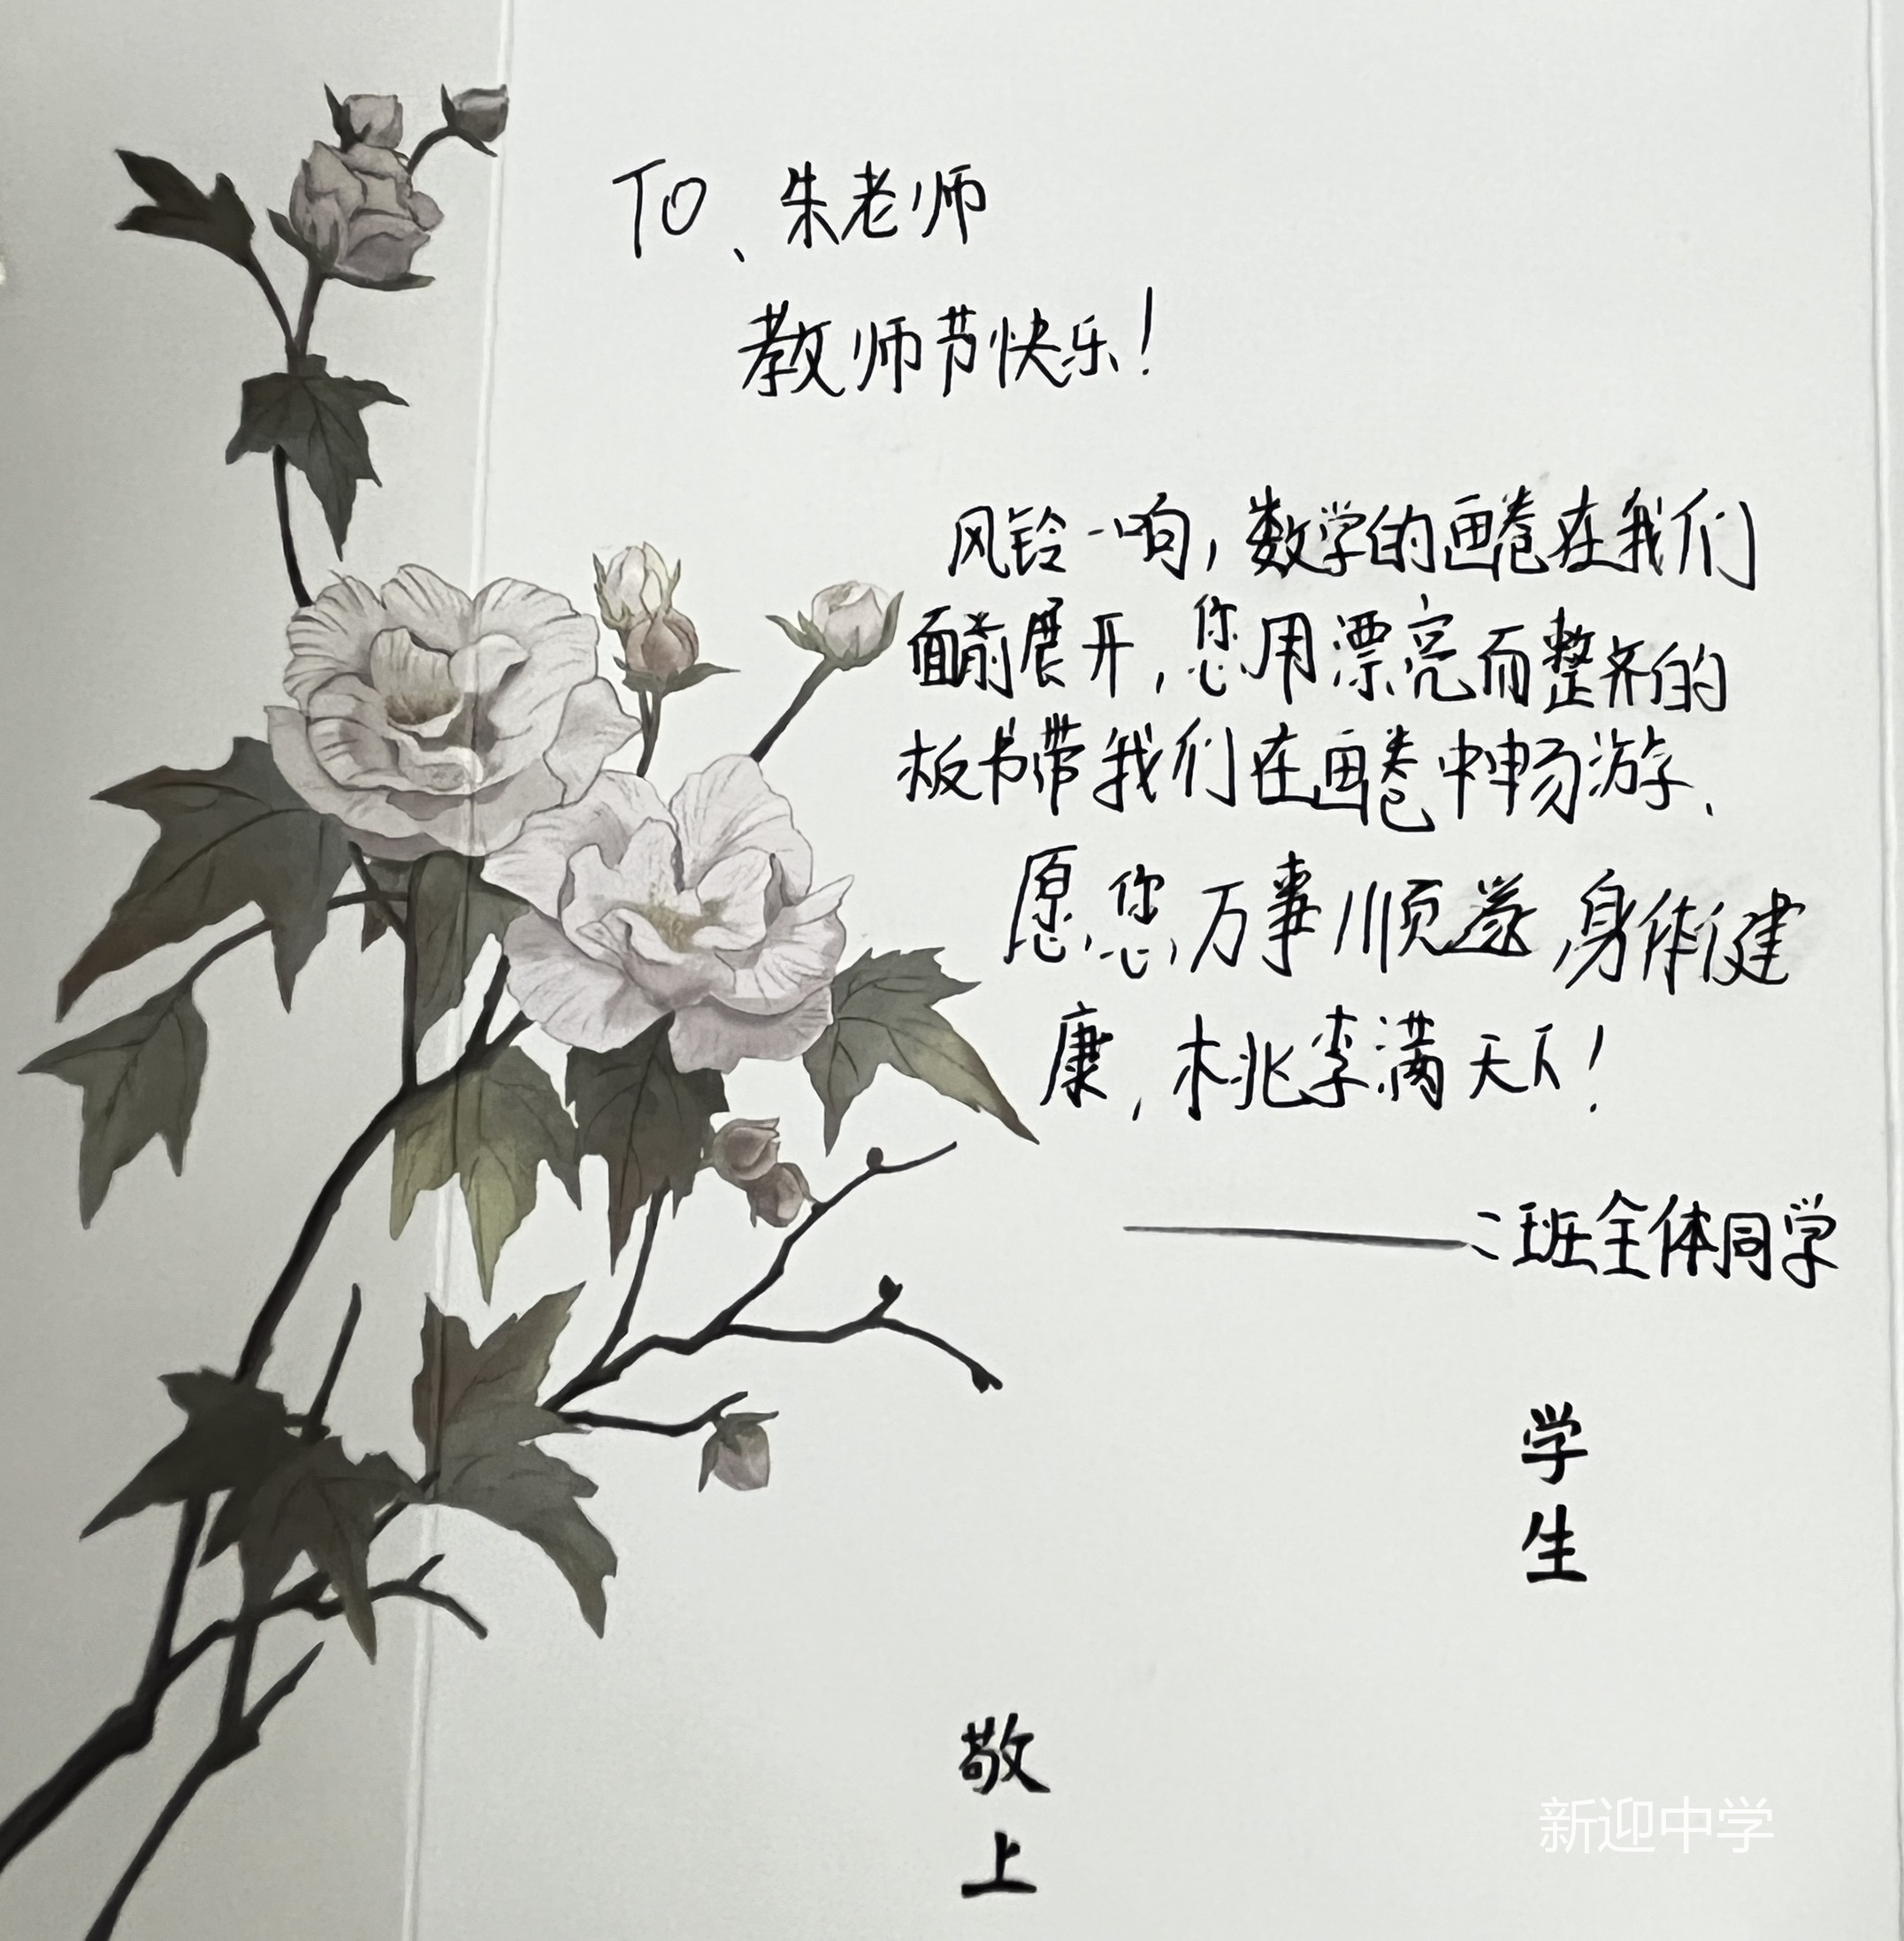 TO、朱老师
教师节快乐！
风铃一响，数学的画卷在我们
面前展开，您用漂亮而整齐的
板书带我们在画卷中畅游、
愿您万事顺遂身体健
康，桃李满天下！
——二班全体同学
学生
敬上
新迎中学